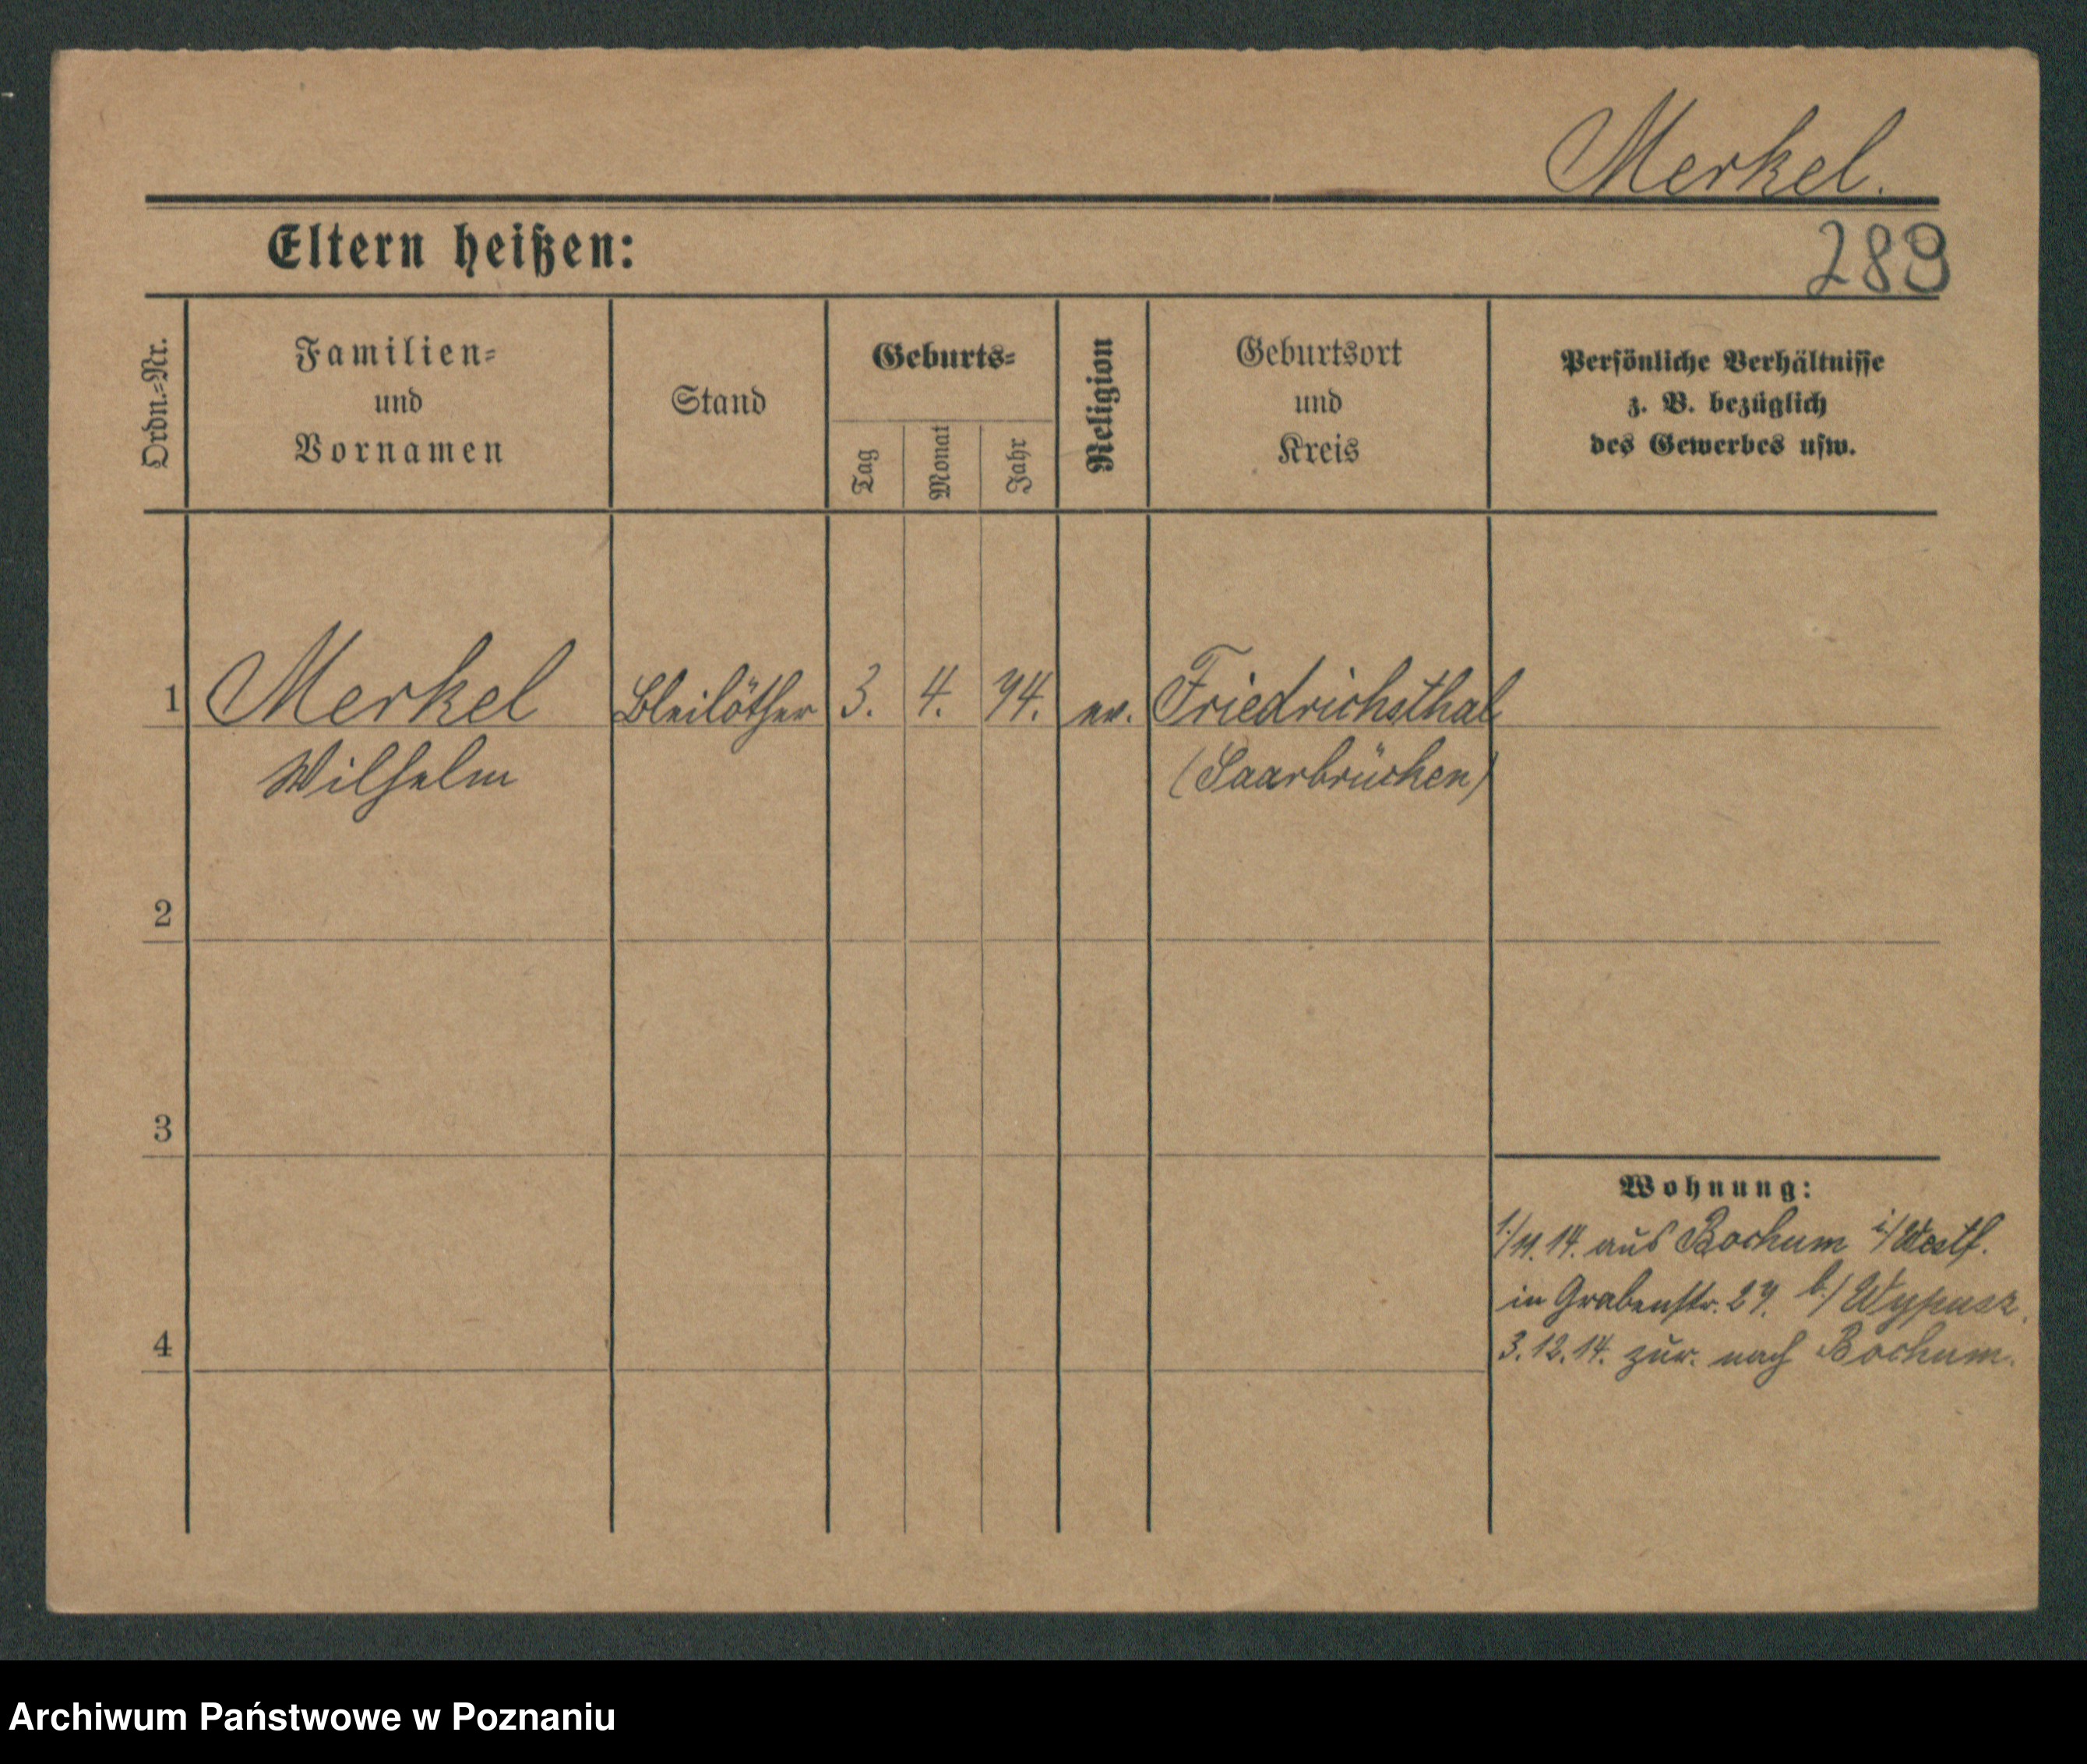 Merkel.
Eltern heißen:
289
Ordn.-Nr.
Familien-
und
Vornamen
Stand
Geburts-
Tag
Monat
Jahr
Religion
Geburtsort
und
Kreis
Persönliche Verhältnisse
z. B. bezüglich
des Gewerbes usw.
1 Merkel Bleilöther 3. 4. 94. ev. Friedrichsthal
Wilhelm (Saarbrücken)
2
3
Wohnung:
1./11.14. aus Bochum i/Westf.
in Grabenstr. 27. b./ Wypusz.
3.12.14. zur. nach Bochum.
4
Archiwum Państwowe w Poznaniu